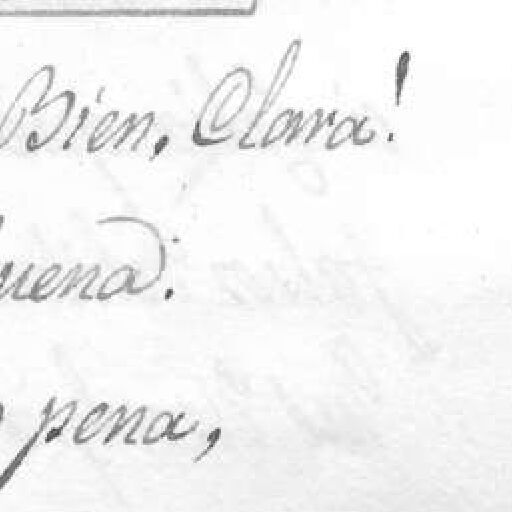 Bien, Clara!
uena.
pena,